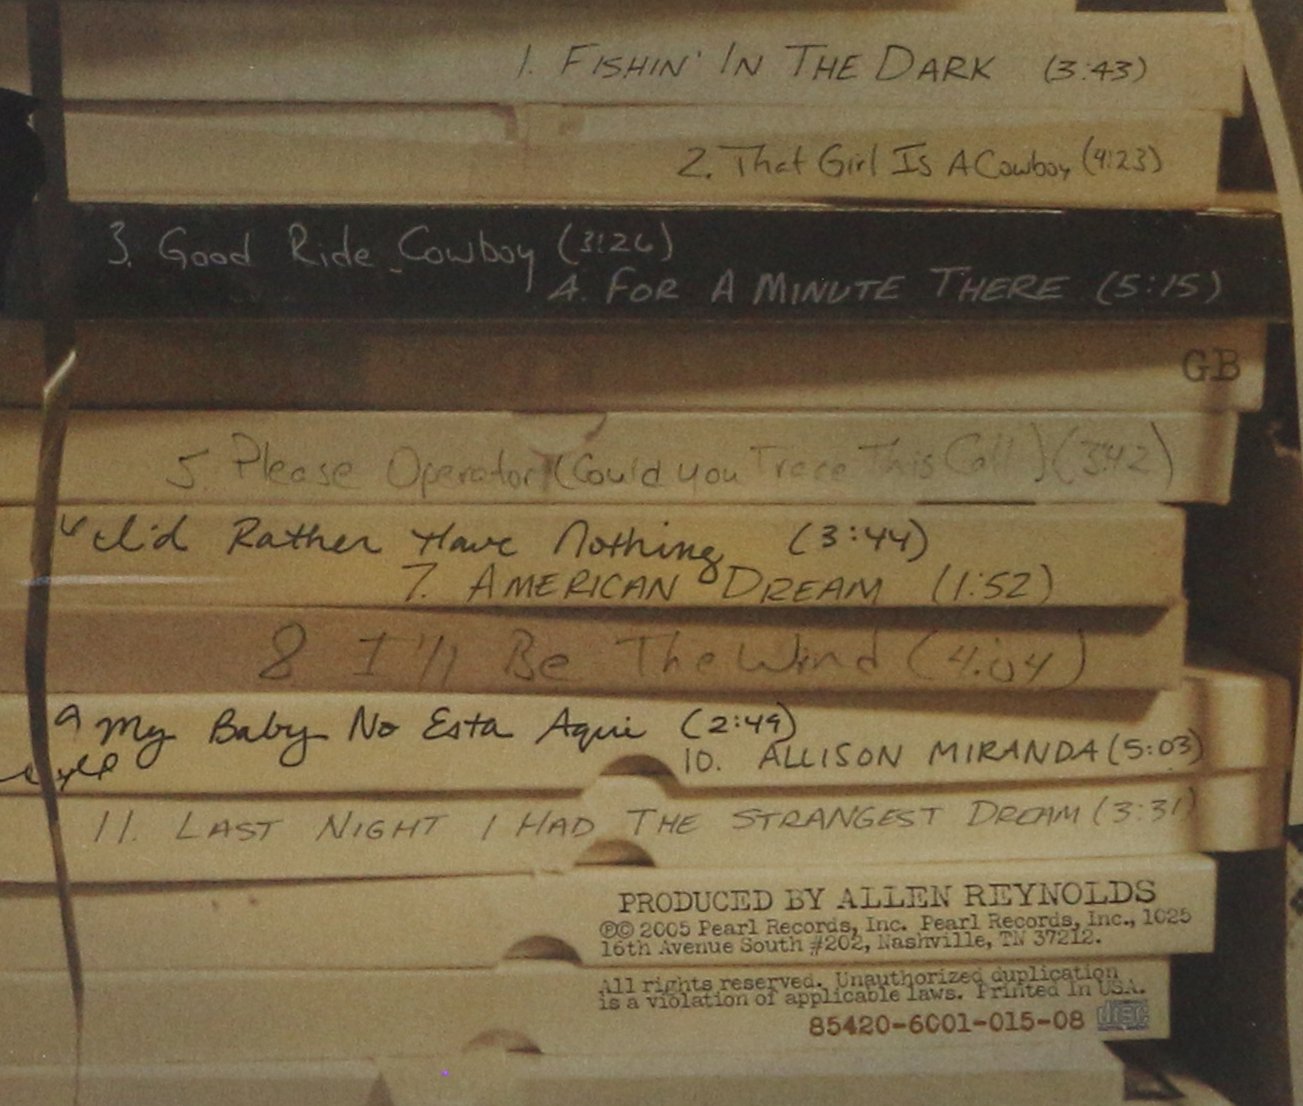 1. FISHIN' IN THE DARK (3:43)
2. That Girl Is A Cowboy (4:23)
3. Good Ride Cowboy (3:26)
4. FOR A MINUTE THERE (5:15)
GB
5. Please Operator (Could you Trace This Call) (3:42)
6 I'd Rather Have Nothing (3:44)
7. AMERICAN DREAM (1:52)
8 I'll Be The Wind (4:04)
9 My Baby No Esta Aqui (2:49)
10. ALLISON MIRANDA (5:03)
11. LAST NIGHT I HAD THE STRANGEST DREAM (3:31)
PRODUCED BY ALLEN REYNOLDS
℗© 2005 Pearl Records, Inc. Pearl Records, Inc., 1025
16th Avenue South #202, Nashville, TN 37212.
All rights reserved. Unauthorized duplication
is a violation of applicable laws. Printed In USA.
85420-6001-015-08 disc